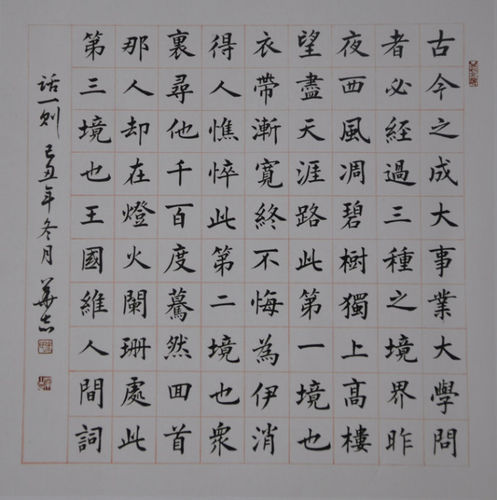 古今之成大事業大學問
者必經過三種之境界昨
夜西風凋碧樹獨上髙樓
望盡天涯路此第一境也
衣帶漸寬終不悔為伊消
得人憔悴此第二境也眾
裏尋他千百度驀然囬首
那人却在燈火闌珊處此
第三境也王國維人間詞
话一则 己丑年冬月